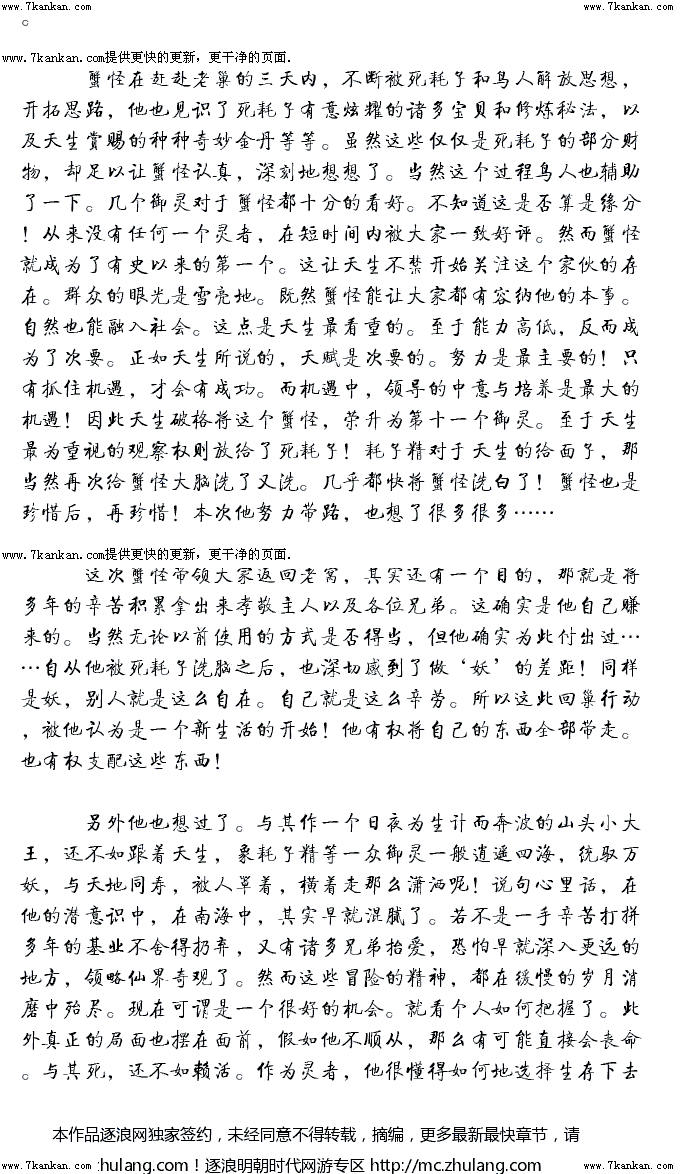 www.7kankan.com www.7kankan.com
。
www.7kankan.com提供更快的更新，更干净的页面.
蟹怪在赶赴老巢的三天内，不断被死耗子和鸟人解放思想，
开拓思路，他也见识了死耗子有意炫耀的诸多宝贝和修炼秘法，以
及天生赏赐的种种奇妙金丹等等。虽然这些仅仅是死耗子的部分财
物，却足以让蟹怪认真，深刻地想想了。当然这个过程鸟人也辅助
了一下。几个御灵对于蟹怪都十分的看好。不知道这是否算是缘分
！从来没有任何一个灵者，在短时间内被大家一致好评。然而蟹怪
就成为了有史以来的第一个。这让天生不禁开始关注这个家伙的存
在。群众的眼光是雪亮地。既然蟹怪能让大家都有容纳他的本事。
自然也能融入社会。这点是天生最看重的。至于能力高低，反而成
为了次要。正如天生所说的，天赋是次要的。努力是最主要的！只
有抓住机遇，才会有成功。而机遇中，领导的中意与培养是最大的
机遇！因此天生破格将这个蟹怪，荣升为第十一个御灵。至于天生
最为重视的观察权则放给了死耗子！耗子精对于天生的给面子，那
当然再次给蟹怪大脑洗了又洗。几乎都快将蟹怪洗白了！蟹怪也是
珍惜后，再珍惜！本次他努力带路，也想了很多很多……
www.7kankan.com提供更快的更新，更干净的页面.
这次蟹怪带领大家返回老窝，其实还有一个目的，那就是将
多年的辛苦积累拿出来孝敬主人以及各位兄弟。这确实是他自己赚
来的。当然无论以前使用的方式是否得当，但他确实为此付出过…
…自从他被死耗子洗脑之后，也深切感到了做‘妖’的差距！同样
是妖，别人就是这么自在。自己就是这么辛劳。所以这此回巢行动
，被他认为是一个新生活的开始！他有权将自己的东西全部带走。
也有权支配这些东西！
另外他也想过了。与其作一个日夜为生计而奔波的山头小大
王，还不如跟着天生，象耗子精等一众御灵一般逍遥四海，统驭万
妖，与天地同寿，被人罩着，横着走那么潇洒呢！说句心里话，在
他的潜意识中，在南海中，其实早就混腻了。若不是一手辛苦打拼
多年的基业不舍得扔弃，又有诸多兄弟抬爱，恐怕早就深入更远的
地方，领略仙界奇观了。然而这些冒险的精神，都在缓慢的岁月消
磨中殆尽。现在可谓是一个很好的机会。就看个人如何把握了。此
外真正的局面也摆在面前，假如他不顺从，那么有可能直接会丧命
。与其死，还不如赖活。作为灵者，他很懂得如何地选择生存下去
本作品逐浪网独家签约，未经同意不得转载，摘编，更多最新最快章节，请
www.7kankan.com zhulang.com！逐浪明朝时代网游专区 http://mc.zhulang.com www.7kankan.com